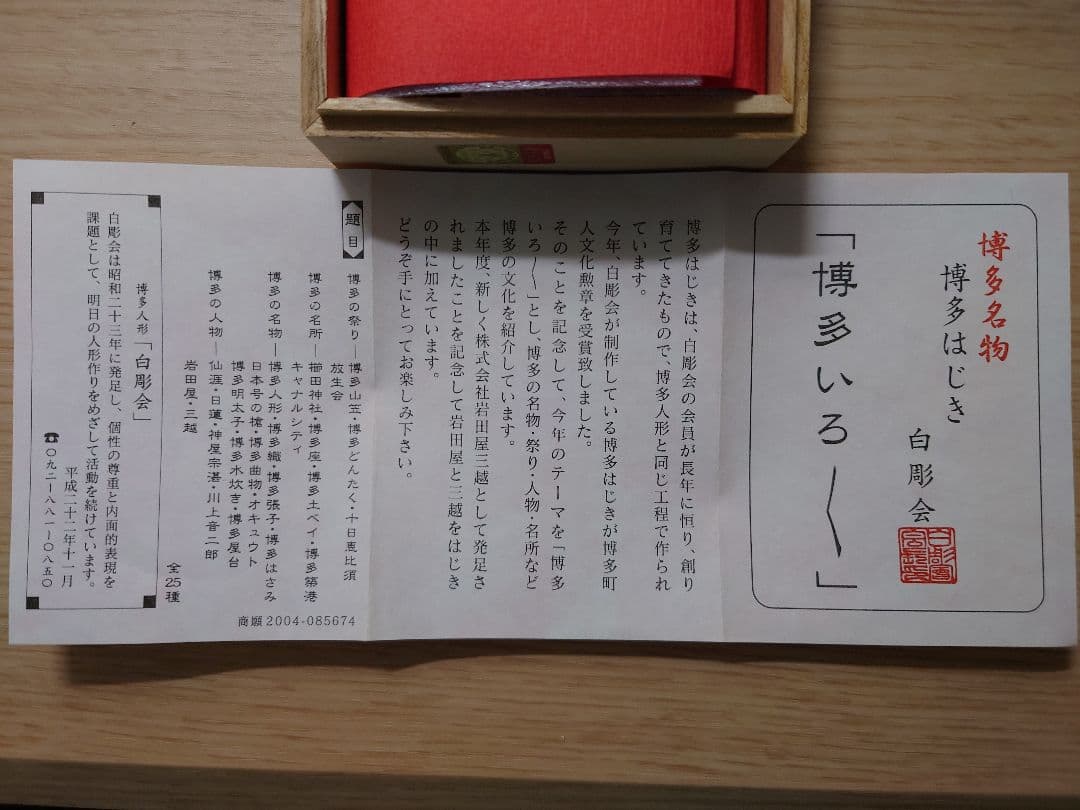 博多名物
博多はじき
白彫会
「博多いろ〳〵」
博多はじきは、白彫会の会員が長年に恒り、創り
育ててきたもので、博多人形と同じ工程で作られ
ています。
今年、白彫会が制作している博多はじきが博多町
人文化勲章を受賞致しました。
そのことを記念して、今年のテーマを「博多
いろ〳〵」とし、博多の名物・祭り・人物・名所など
博多の文化を紹介しています。
本年度、新しく株式会社岩田屋三越として発足さ
れましたことを記念して岩田屋と三越をはじき
の中に加えています。
どうぞ手にとってお楽しみ下さい。
題目
博多の祭り―博多山笠・博多どんたく・十日恵比須
放生会
博多の名所―櫛田神社・博多座・博多土ベイ・博多築港
キャナルシティ
博多の名物―博多人形・博多織・博多張子・博多はさみ
日本号の槍・博多曲物・オキュウト
博多明太子・博多水炊き・博多屋台
博多の人物―仙涯・日蓮・神屋宗湛・川上音二郎
岩田屋・三越
全25種
商願2004-085674
博多人形「白彫会」
白彫会は昭和二十三年に発足し、個性の尊重と内面的表現を
課題として、明日の人形作りをめざして活動を続けています。
平成二十二年十一月
☎〇九二―八八一―〇八五〇